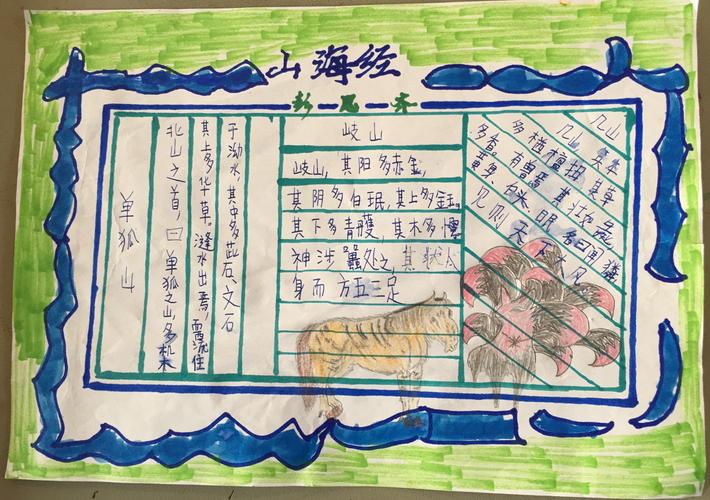 山海经
单狐山
北山之首，曰单狐之山，多机木
其上多化十草。漨水出焉，西流住
于泑水，其中多茈石、文石
岐山
岐山，其阳多赤金，
其阴多白珉，其上多金玉，
其下多青雘，其木多
神涉鼍处之，其状人
身而 方五三足
几山
几山 其木
多楢檀杻 其草
多香。有兽焉 其状如彘
黄身、白头 名曰闻獜
见则天下大风